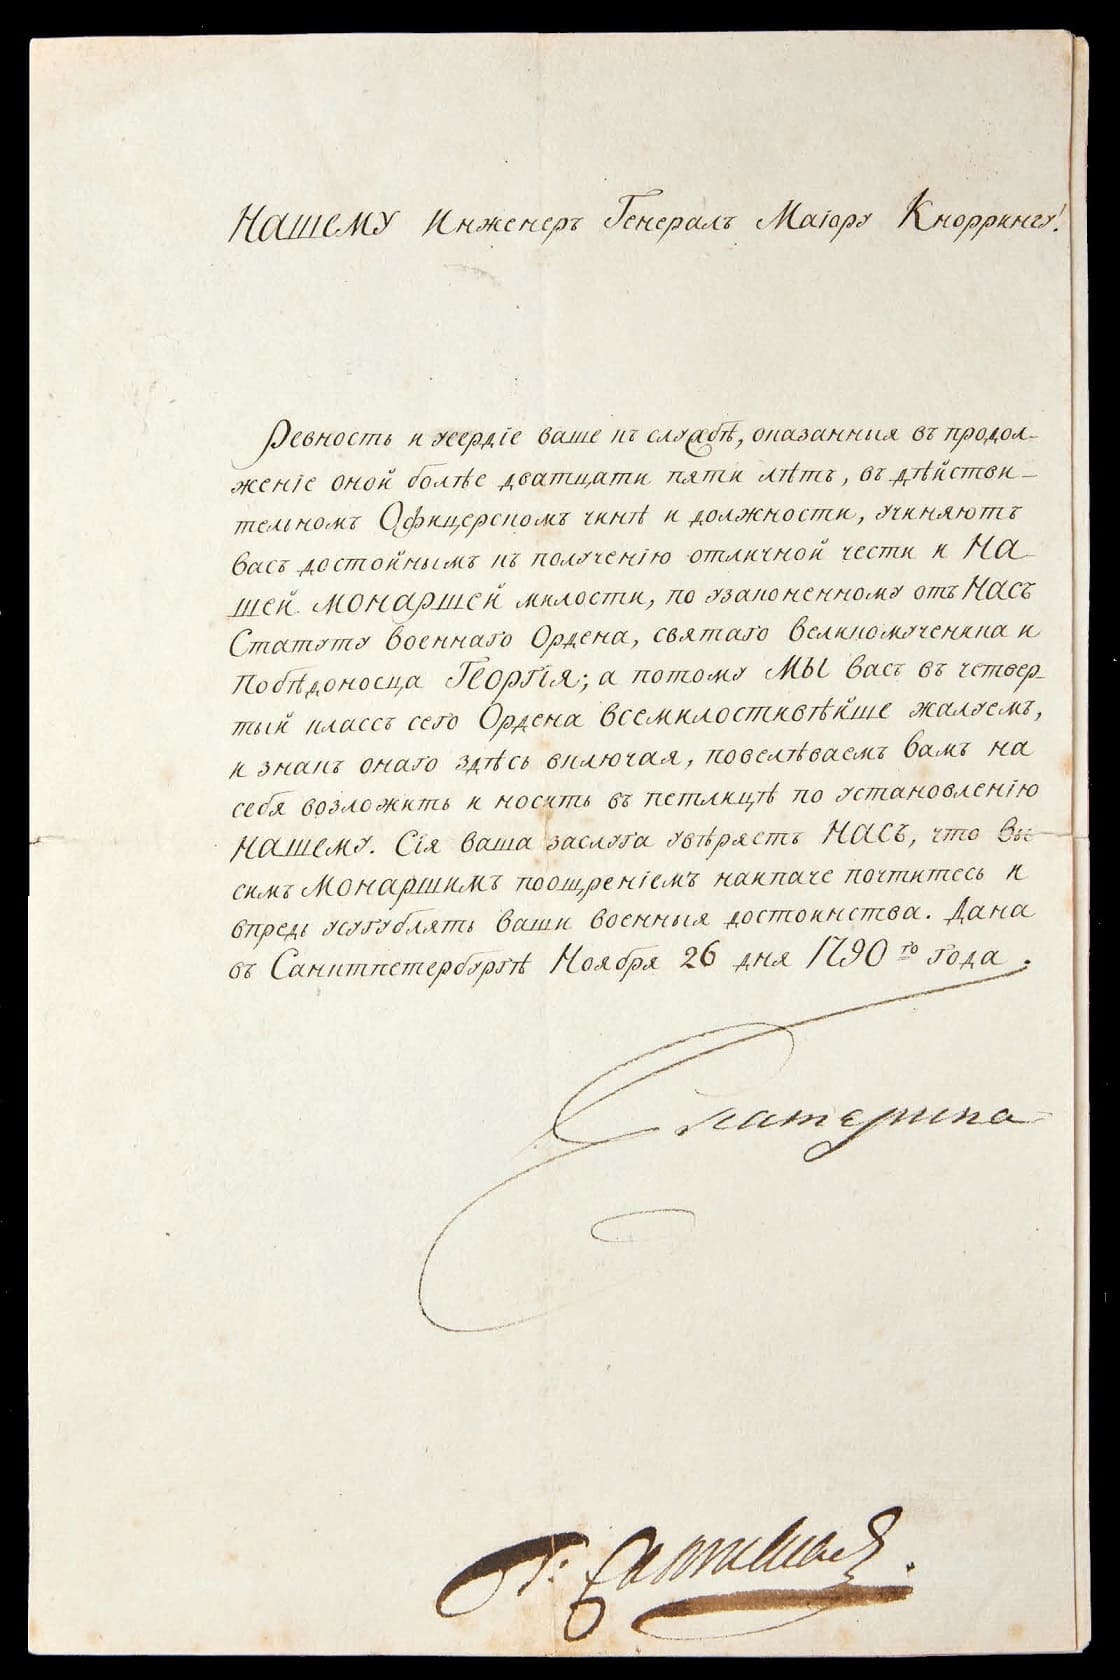 НАШЕМУ Инженеръ Генералъ Маіору Кноррингу!
Ревность и усердіе ваше къ службѣ, оказанныя въ продол-
женіе оной болѣе дватцати пяти лѣтъ, въ дѣйстви-
тельномъ Офицерскомъ чинѣ и должности, учиняютъ
васъ достойнымъ къ полученію отличной чести и НА
ШЕЙ МОНАРШЕЙ милости, по узаконенному отъ НАСЪ
Статуту военнаго Ордена, святаго великомученика и
Побѣдоносца ГЕОРГІЯ; а потому МЫ васъ въ четвер-
тый классъ сего Ордена всемилостивѣйше жалуемъ,
и знакъ онаго здѣсь включая, повелѣваемъ вамъ на
себя возложить и носить въ петлицѣ по установленію
НАШЕМУ. Сія ваша заслуга увѣряетъ НАСЪ, что вы
симъ МОНАРШИМЪ поощреніемъ наипаче почтитесь и
впредь усугублять ваши военныя достоинства. Дана
въ Санктпетербургѣ Ноября 26 дня 1790 го года.
Екатерина
Г: Салтыковъ.